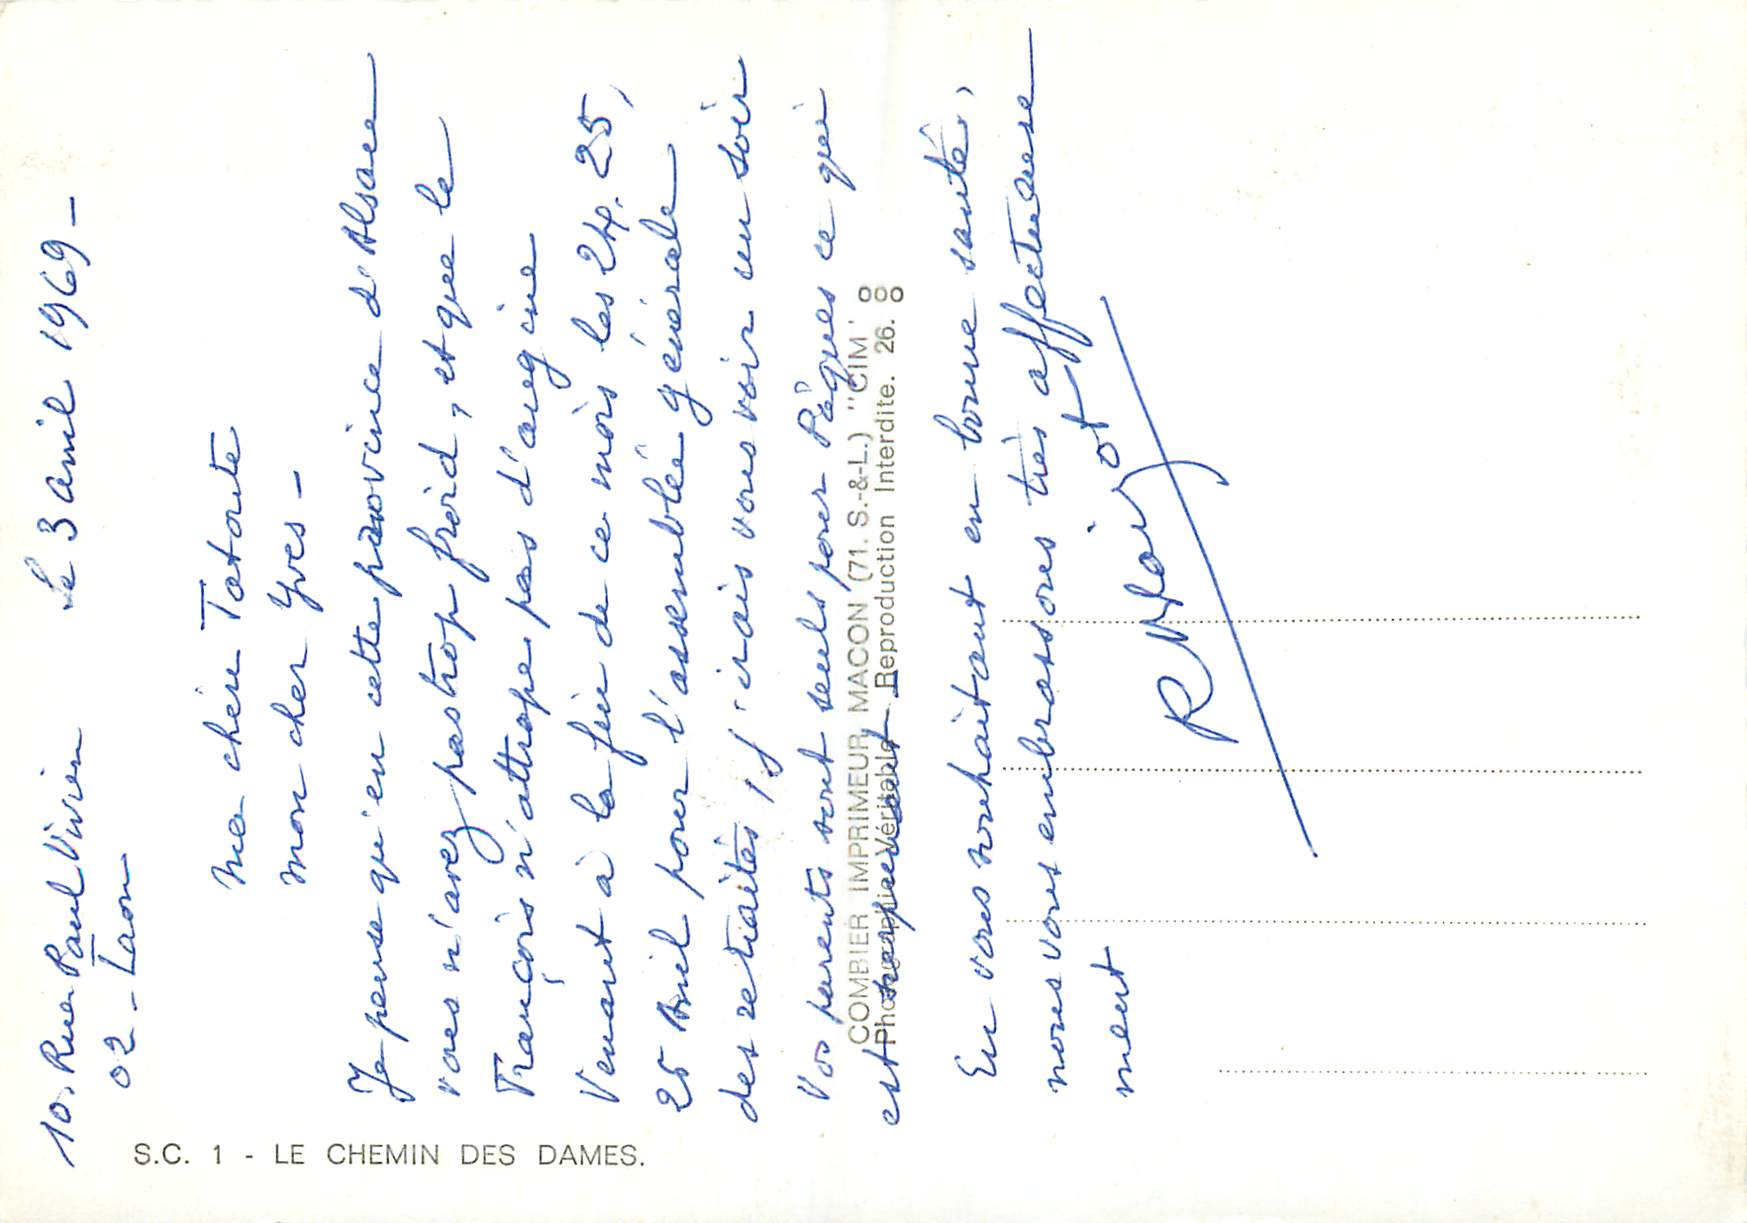 10, Rue Paul Vivien
02 - Laon
Le 3 avril 1969 -
Ma chère Totorte
Mon cher Yves -
Je pense qu'en cette province d'Alsace
vous n'avez pas trop froid, et que le
François n'attrape pas d'angine
Venant à la fin de ce mois les 24, 25,
25 Avril pour l'assemblée générale
des retraités, j'irais vous voir un soir
Vos parents sont seuls pour Pâques ce qui
est
En vous souhaitant en bonne santé,
nous vous embrassons très affectueuse
ment
S.C. 1 - LE CHEMIN DES DAMES.
COMBIER IMPRIMEUR MACON (71. S.-&-L.) "CIM"
Photographie Véritable Reproduction Interdite. 26.